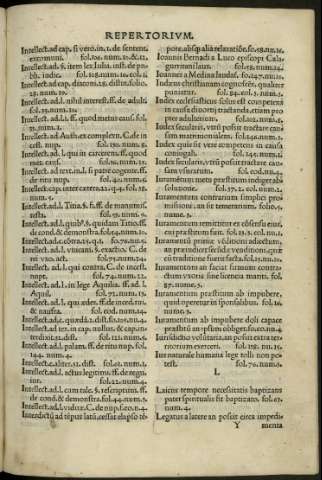 REPERTORIVM.
Intellect.ad cap. si vero. in. 1. de senten.
excommuni. fol.
Intellect.ad. §. item lex Iulia. inst. de pu
bli. iudic. fol. 118. num. 10. col. 1.
Intellect.ad cap. discom. 28. distin. folio.
28. num. 10.
Intellect.ad.l. nihil interest. ff. de adult.
fol. 51. num. 10.
Intellect.ad.l.1. ff. quod metus caus. fol.
21. num. 2.
Intellect.ad Auth. et complern. C. de in
cest. nup. fol. 139. num. 8.
Intellect.ad.l. qui in carcerem. ff. quod
met. caus. fol. num. 20.
Intellect.ad text. in.l. si pater cogente. ff.
de ritu nup. fol. 41. num. 10.
Intellect.cap. inter cætera. 22. q. 4. fol. 28.
num. 5.
Intellect.ad.l. Titia. §. si. ff. de manumis.
testa. fol. 59. num. 9.
Intellect.ad.l. quib9. §. quidam Titio. ff.
de cond. & demonstra. fol. 44. num. 10.
Intellect.ad.c. cōtra. 23. q. 1. fo. 79. nu. 6.
Intellect.ad.l. vniuersi. §. exactio. C. de
rei vxo. act. fol. 71. num. 24.
Intellect. ad.l. qui contra. C. de incest.
nupt. fol. 74. num. 12.
Intellect.ad.l. in lege Aquilia. ff. ad.l.
Aquil. fol. 71. num. 13.
Intellect.ad.l. qui ædes. ff. de incend. ru.
& naufra. fol. eod. num. 14.
Intellect.ad.c. quæsitū. 22. q. 2. fo. 25. nu.
Intellect.ad tex. in cap. nullus. & cap. in-
terdixit. 32. dist. fol. 121. num. 6.
Intellect.ad.l. palam. ff. de ritu nup. fol.
144. num. 4.
Intellect.c. aliter. 12. dist. fol. 61. num. 2.
Intellect.ad.l. actus legitimi. ff. de regu.
iur. fol. 22. num. 4.
Intellect.ad.l. cam tale. §. rescriptum. ff.
de cond. & demonstra. fol. 44. num. 5.
Intellect.ad.l. viduæ. C. de nup. fi. 20. n. 4.
Interdictū ad tēpus latū, cessat elapso tē-
pore absq; alia relatatiōn. fo. 48. nu. 11.
Ioannis Bernardi à Luco episcopi Cala-
gurritani laus. fol. 15. num. 14.
Ioannes a Medina laudas. fo. 147. nu. 11.
Iudæus christianam cognoscēs, qualiter
puniatur. fol. 84. col. 3. num. 5.
Iudex ecclesiasticus solus est competens
in causa diuortij tractanda, etiam pro
pter adulterium. fol. 102. num. 2.
Iudex secularis, vtrū possit tractare cau-
sam matrimonialem. fol. 144. num. 1.
Iudex quis sit vere competens in causa
coniugali. fol. 144. num. 1.
Iudex secularis, vtrū possit tractare cau-
sam vsurariā. fol. cod. nu. 5.
Iuramēntū metu præstitum indiget ab-
solutione. fol. 37. 2. col. num. 2.
Iuramentum contrarium simplici pro
missioni, an sit temerarium. folio. 5.
num. 3.
Iuramentum remittitur ex cōsensu eius,
cui præstitum fuit. fol. 13. 2. col. nu. 2.
Iuramentū primæ vēditioni adiectum,
an præferatur secūdæ venditioni, quā
tū traditione fuerit facta. fol. 23. num. 22.
Iuramentum an faciat firmum contra
ctum vxoris sine licentia mariti. fol.
87. num. 2.
Iuramentum præstitum ab impubere,
quid operetur in sponsalibus. fol. 16.
num. 2.
Iuramentum ab impubere doli capace
præstitū an ipsum obliget. fo. 10. nu. 4.
Iurisdictio voluntaria, an possit extra ter
ritorium exerceri. fol. 129. num. 15.
Ius naturale humana lege tolli non po
test. fol. 79. num. 2.
L
Laicus tempore necessitatis baptizans
pater spiritualis fit baptizato. fol. 67.
num. 4.
Legatus a latere an possit circa impedi-
Y menta